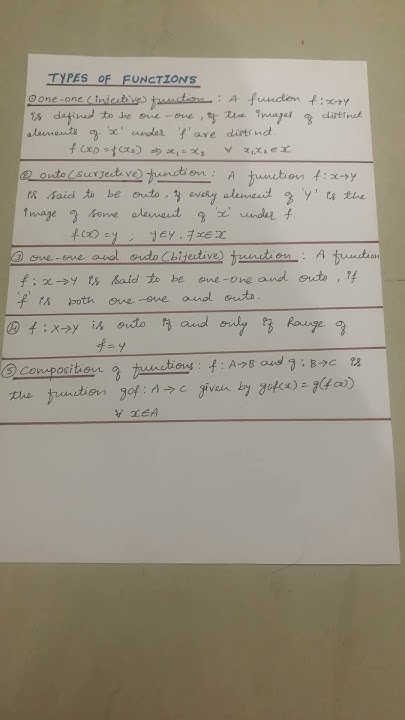 TYPES OF FUNCTIONS
① one-one (injective) function : A function f : X→Y
is defined to be one-one, if the images of distinct
elements of 'X' under 'f' are distinct
f(x₁) = f(x₂) ⇒ x₁ = x₂ ∀ x₁, x₂ ∈ X
② onto (surjective) function : A function f : X→Y
is said to be onto, if every element of 'Y' is the
image of some element of 'X' under f.
f(x) = y ; y ∈ Y, ∃ x ∈ X
③ one-one and onto (bijective) function : A function
f : X→Y is said to be one-one and onto, if
'f' is both one-one and onto.
④ f : X→Y is onto if and only if Range of
f = Y
⑤ Composition of functions : f : A→B and g : B→C is
the function gof : A→C given by gof(x) = g(f(x))
∀ x∈A